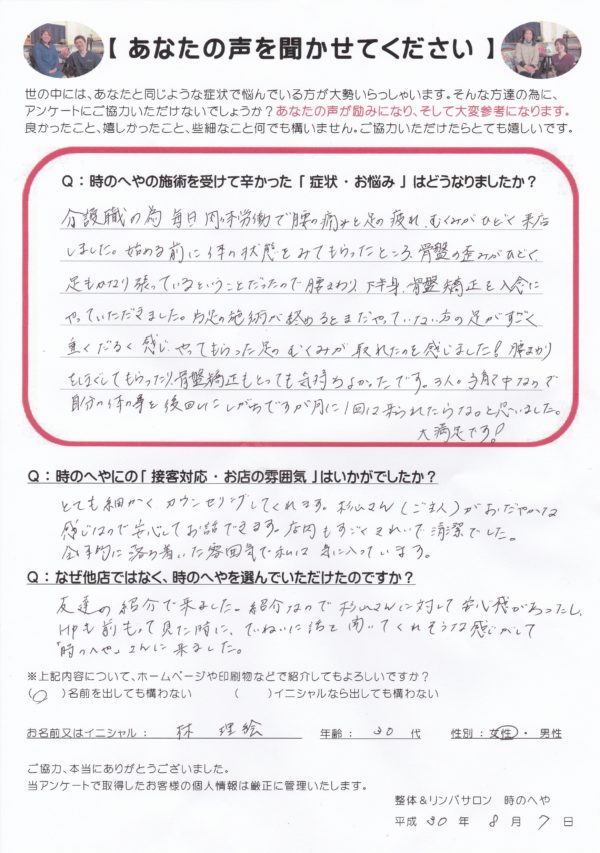 【 あなたの声を聞かせてください 】
世の中には、あなたと同じような症状で悩んでいる方が大勢いらっしゃいます。そんな方達の為に、
アンケートにご協力いただけないでしょうか？あなたの声が励みになり、そして大変参考になります。
良かったこと、嬉しかったこと、些細なこと何でも構いません。ご協力いただけたらとても嬉しいです。
Q：時のへやの施術を受けて辛かった「 症状・お悩み 」はどうなりましたか？
介護職の為 毎日 肉体労働で腰の痛みと足の疲れ、むくみがひどく来店
しました。始める前に体の状態をみてもらったところ、骨盤の歪みがひどく、
足もかなり張っているということだったので腰まわり、下半身、骨盤矯正を入念に
やっていただきました。片足の施術が終わるとまだやっていない方の足がすごく
重くだるく感じ、やってもらった足のむくみが取れたのを感じました！腰まわり
をほぐしてもらったり、骨盤矯正もとっても気持ちよかったです。3人の子育て中なので
自分の体の事を後回しにしがちですが月に1回は来られたらな。と思いました。
大満足です！
Q：時のへやにの「 接客対応・お店の雰囲気 」はいかがでしたか？
とても細かくカウンセリングしてくれます。杉山さん（ご主人）がおだやかな
感じなので安心してお話できます。店内もすごくきれいで清潔でした。
全体的に落ち着いた雰囲気で私は気に入っています。
Q：なぜ他店ではなく、時のへやを選んでいただけたのですか？
友達の紹介で来ました。紹介なので杉山さんに対して安心感があったし、
HPも前もって見た時に、ていねいに話を聞いてくれそうな感じがして
「時のへや」さんに来ました。
※上記内容について、ホームページや印刷物などで紹介してもよろしいですか？
（○ ）名前を出しても構わない　（　）イニシャルなら出しても構わない
お名前又はイニシャル： 林 理絵　年齢： 30 代　性別：女性・ 男性
ご協力、本当にありがとうございました。
当アンケートで取得したお客様の個人情報は厳正に管理いたします。
整体＆リンパサロン　時のへや
平成 30 年 8 月 7 日